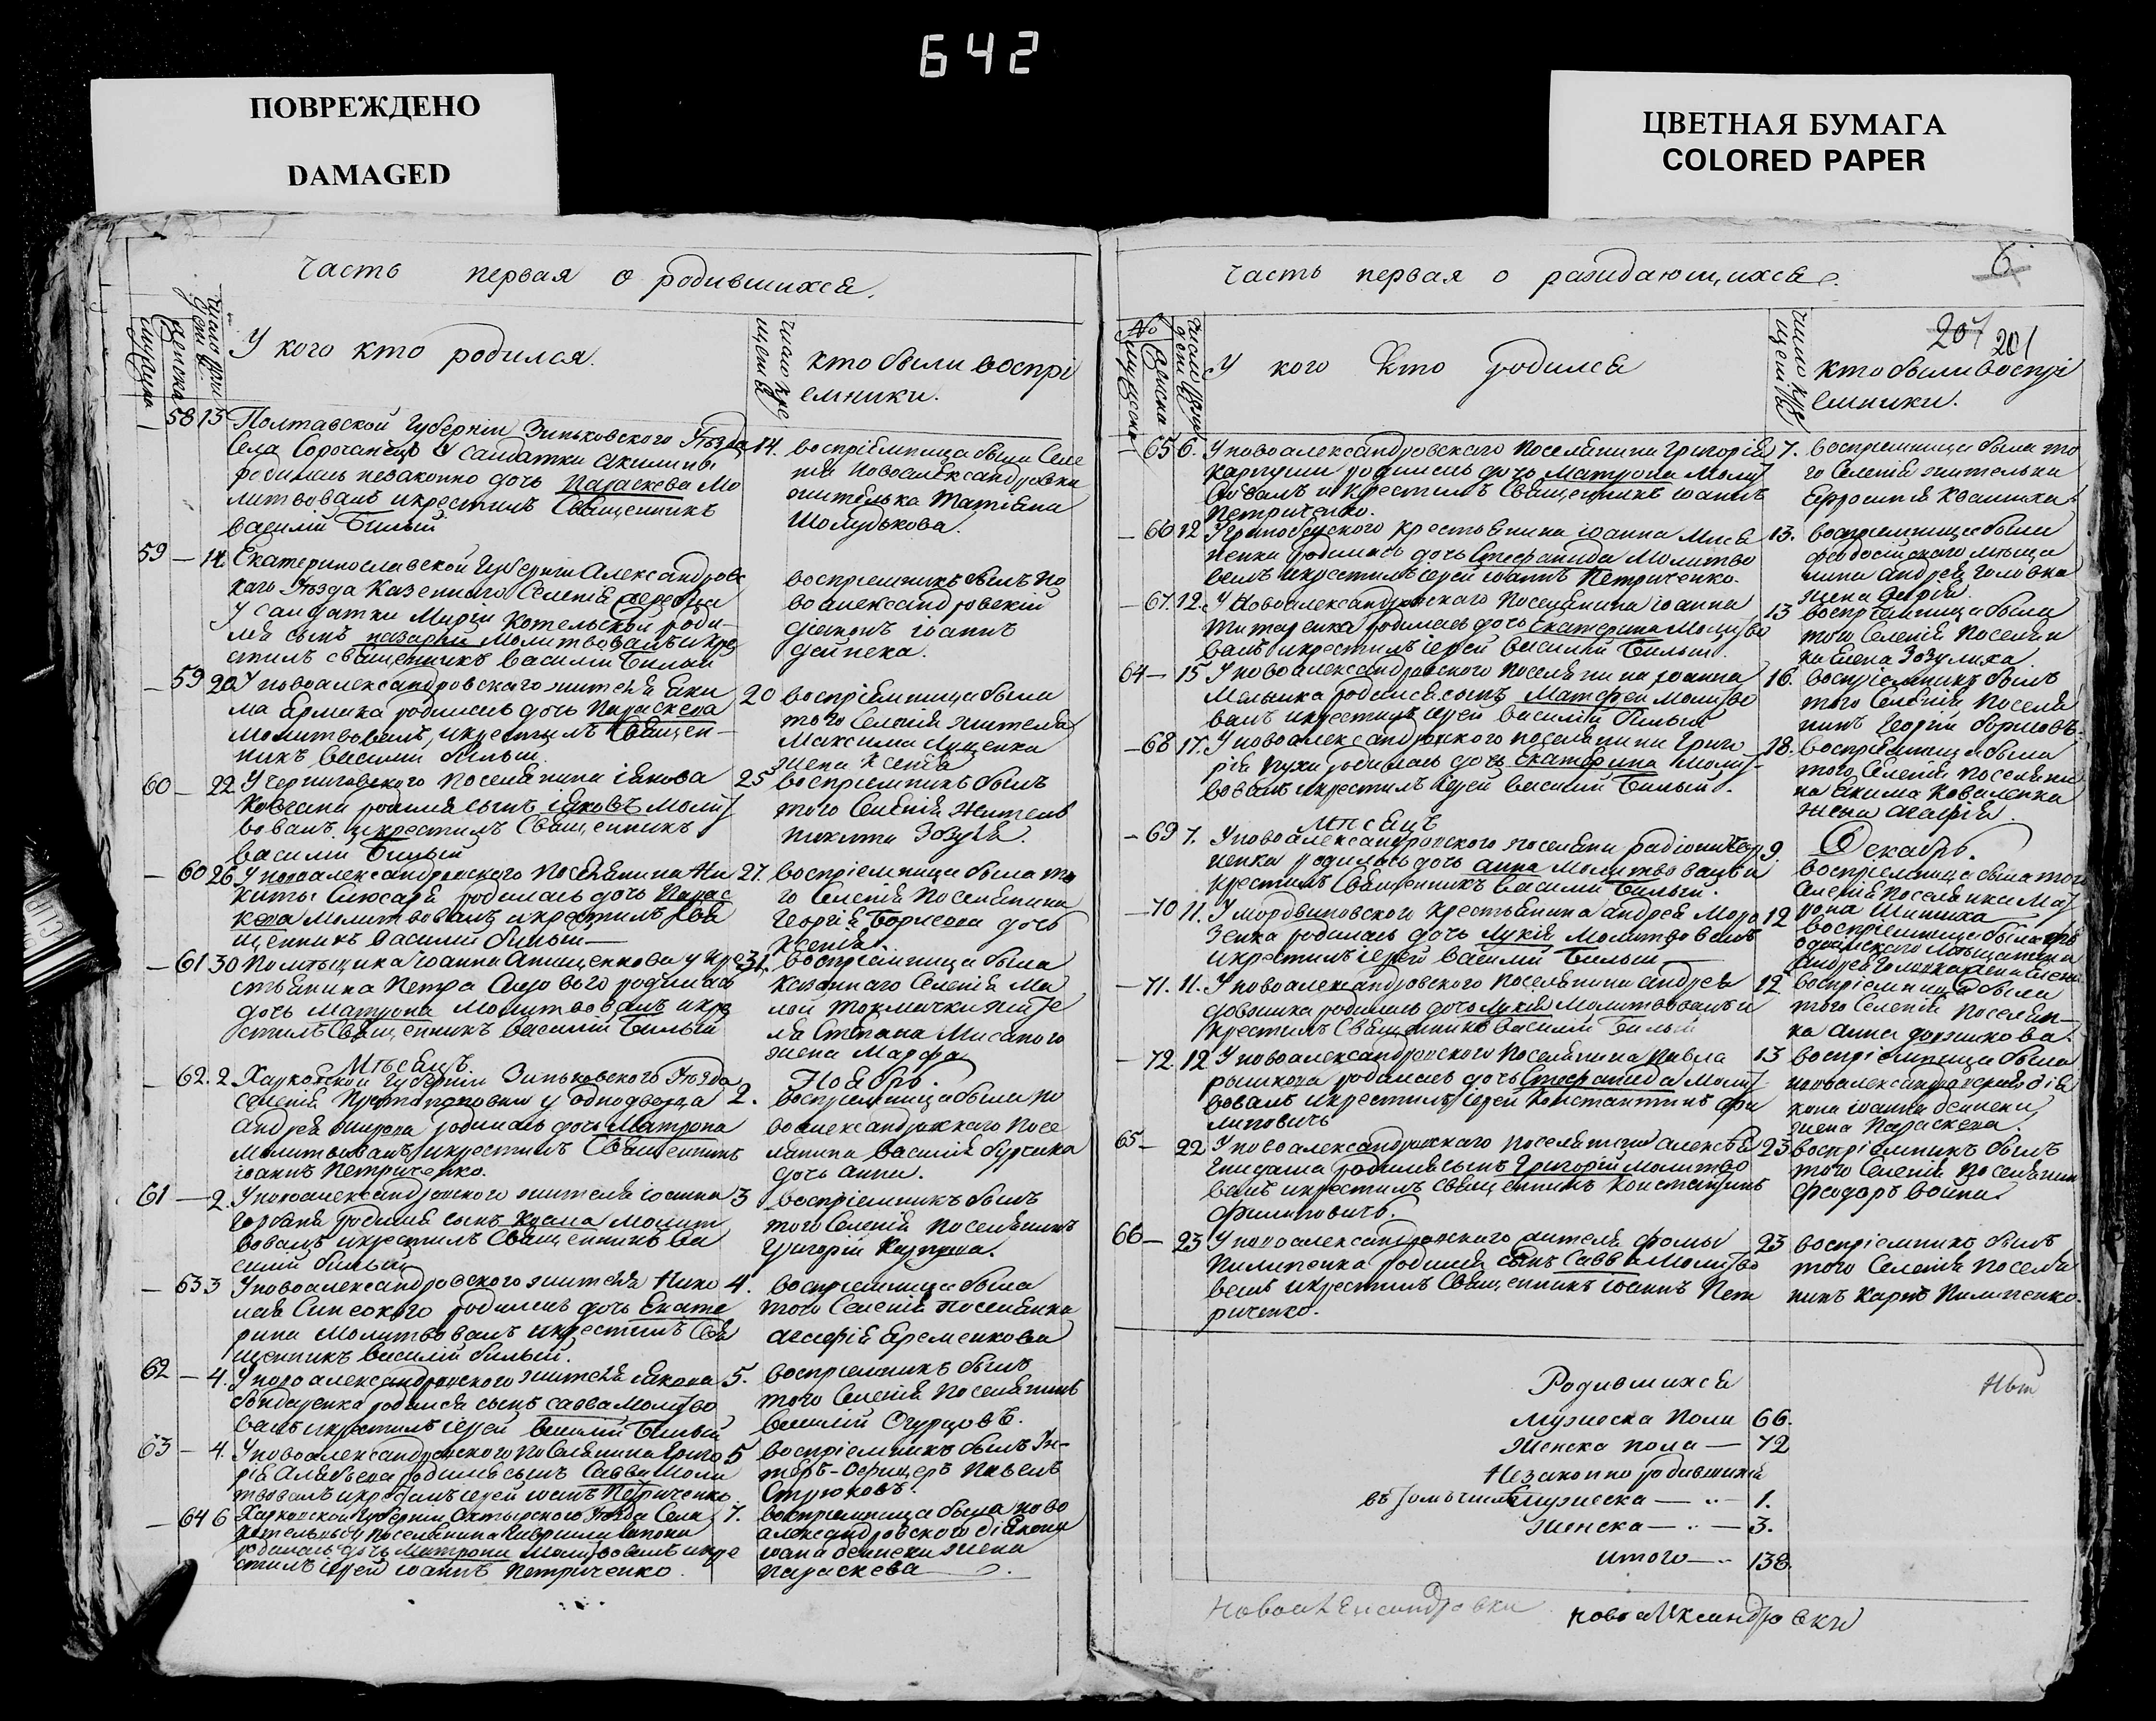 642
ПОВРЕЖДЕНО
DAMAGED
ЦВЕТНАЯ БУМАГА
COLORED PAPER
Часть первая о родившихся.
женска
У кого кто родился.
кто были воспрі
емники.
58 13 Полтавской Губерніи Зиньковского Уѣзда
Села Сорочанецъ У салдатки Акилины
родилась незаконно дочь Параскева Мо
литвовалъ и крестилъ Священникъ
Василій Билый
14. воспріемница была Селе
нія Новоалександровки
жителька Татіана
59 — 14. Екатеринославской Губерніи Александровс
кого Уѣзда Казенного Селенія
У салдатки Маріи Котельской роди
лся сынъ Назарій Молитвовалъ и кре
стилъ священникъ Василій Билый
воспріемникъ былъ Но
воалександровскій
діаконъ Іоаннъ
Дейнека.
— 59 20 У новоалександровского жителя Аки
ма Ермака родилась дочь Параскева
Молитвовалъ, и крестилъ Священ—
никъ Василій Билый
20 воспріемница была
того Селенія жителя
Максима Луценка
жена Ксенія
60 — 22 У черниговского поселянина Іякова
родился сынъ Іяковъ Молит
вовалъ и крестилъ Священникъ
Василій Билый
25 воспріемникъ былъ
того Селенія Житель
Никита Зозуля.
— 60 26 У новоалександровского Поселянина Ни
киты Слюсаря родилась дочь Парас
кева Молитвовалъ и крестилъ Свя
щенникъ Василій Билый —
27. воспріемница была то
го Селенія Поселянина
Георгія Борисова дочь
Ксенія.
— 61 30 Помѣщика Іоанна у кре
стьянина Петра родилась
дочь Матрона Молитвовалъ и кре
стилъ Священникъ Василій Билый
31. воспріемница была
казенного Селенія Ма
лой Токмачки жите
ля Степана Мисаного
жена Марфа
Мѣсяцъ Ноябрь.
— 62. 2 Харковской Губерніи Зиньковского Уѣзда
селенія у однодворца
Андрея родилась дочь Матрона
Молитвовалъ и крестилъ Священникъ
Іоаннъ Петриченко.
2. воспріемница была но
воалександровского Посе
лянина Василія Бурчика
дочь Анна.
61 — 2. У новоалександровского жителя Іоанна
Горбаня родился сынъ Косма Молит
вовалъ и крестилъ Священникъ Ва
силій Билый
3 воспріемникъ былъ
того Селенія Поселянинъ
Григорій Карпуша.
— 63 3 У новоалександровского жителя Нико
лая Синеокого родилась дочь Екате
рина Молитвовалъ и крестилъ Свя
щенникъ Василій Билый.
4. воспріемница была
того Селенія Поселянка
Агафія Еременкова
62 — 4. У новоалександровского жителя Іякова
Бондаренка родился сынъ Савва Молитво
валъ и крестилъ Іерей Василій Билый
5. воспріемникъ былъ
того Селенія Поселянинъ
Василій Огурцовъ.
63 — 4. У новоалександровского Поселянина Григо
рія родился сынъ Савва Моли
твовалъ и крестилъ Іерей Іоаннъ Петриченко
5 воспріемникъ былъ Ун—
теръ-Офицеръ Павелъ
Стрюковъ.
— 64 6 Харковской Губерніи Ахтырского Уѣзда Села
Котельвы Поселянина Гавріила
родилась дочь Матрона Молитвовалъ и кре
стилъ Іерей Іоаннъ Петриченко.
7. воспріемница была ново
александровского діякона
Іоана Дейнеки жена
Параскева
Часть первая о раждающихся.
6
207 201
№
У кого кто родился
кто были воспрі
емники.
— 65 6. У новоалександровского Поселянина Григорія
Карпуши родилась дочь Матрона Молит
вовалъ и крестилъ Священникъ Іоаннъ
Петриченко.
7. воспріемница была то
го Селенія жителька
Ефросинія Квашика
— 66 12 крестьянина Іоанна
родилась дочь Стефанида Молитво
валъ и крестилъ Іерей Іоаннъ Петриченко.
13. воспріемница была
феодосійского мѣща
нина Андрея Головка
жена
— 67. 12. У Новоалександровского Поселянина Іоанна
Титаренка родилась дочь Екатерина Молитво
валъ и крестилъ Іерей Василій Билый.
13 воспріемница была
того Селенія Поселян
ка Елена Зозулиха.
64 — 15 У новоалександровского Поселянина Іоанна
Мельника родился сынъ Матфей Молитво
валъ и крестилъ Іерей Василій Билый
16. воспріемникъ былъ
того Селенія Поселя
нинъ Георгій Борисовъ.
— 68 17. У новоалександровского поселянина Григо
рія родилась дочь Екатерина Молит
вовалъ и крестилъ Іерей Василій Билый.
18. воспріемница была
того Селенія Поселяни
на Якима Коваленка
жена Агафія
Мѣсяцъ Декабрь.
— 69 7. У новоалександровского поселянина Радіона
ненка родилась дочь Анна Молитвовалъ и
крестилъ Священникъ Василій Билый.
9. воспріемница была того
Селенія Поселянка Мат
рона Шипиха
— 70 11. У мордвиновского крестьянина Андрея Моро
зенка родилась дочь Лукія Молитвовалъ
и крестилъ Іерей Василій Билый —
12 воспріемница была фео
досійского Мѣщанина
Андрея Головка жена
— 71. 11. У новоалександровского Поселянина Андрея
Довбника родилась дочь Лукія Молитвовалъ и
крестилъ Священникъ Василій Билый
12 воспріемница была
того Селенія Поселян—
ка Анна
— 72. 12 У новоалександровского Поселянина Павла
родилась дочь Стефанида Молит
вовалъ и крестилъ Іерей Константинъ Фи
липовичъ
13 воспріемница была
новоалександровского дія
кона Іоанна Дейнеки,
жена Параскева.
65 — 22 У новоалександровского Поселянина Алексѣя
родился сынъ Григорій Молитво
валъ и крестилъ священникъ Константинъ
Филиповичъ.
23 воспріемникъ былъ
того Селенія Поселянин
Феодоръ Война.
66 — 23 У новоалександровского жителя Фомы
Пилипенка родился сынъ Савва Молитво
валъ и крестилъ Священникъ Іоаннъ Пет
риченко.
23 воспріемникъ былъ
того Селенія Поселя
нинъ Карпъ Пилипенко.
Родившихся
Мужеска Пола 66.
Женска пола — 72
Незаконно родившихся
въ томъ числѣ Мужеска — 1.
Женска — 3.
Итого — 138.
Новоалександровки Новоалександровки